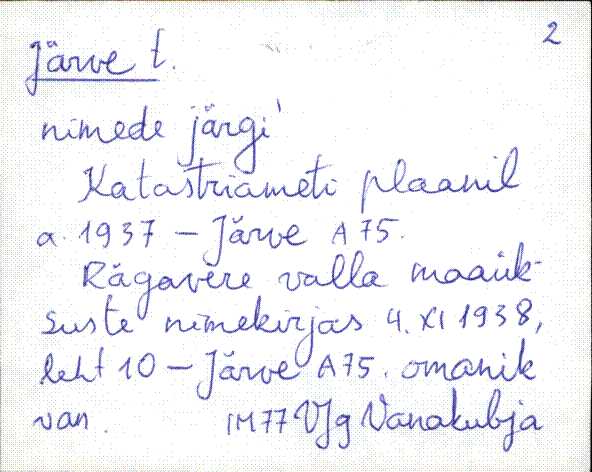 2
Järve t.
nimede järgi
Katastriameti plaanil
a. 1937 – Järve A75.
Rägavere valla maaük-
suste nimekirjas 4. XI 1938,
leht 10 – Järve A75. omanik
van. IM77 VJg Vanakubja